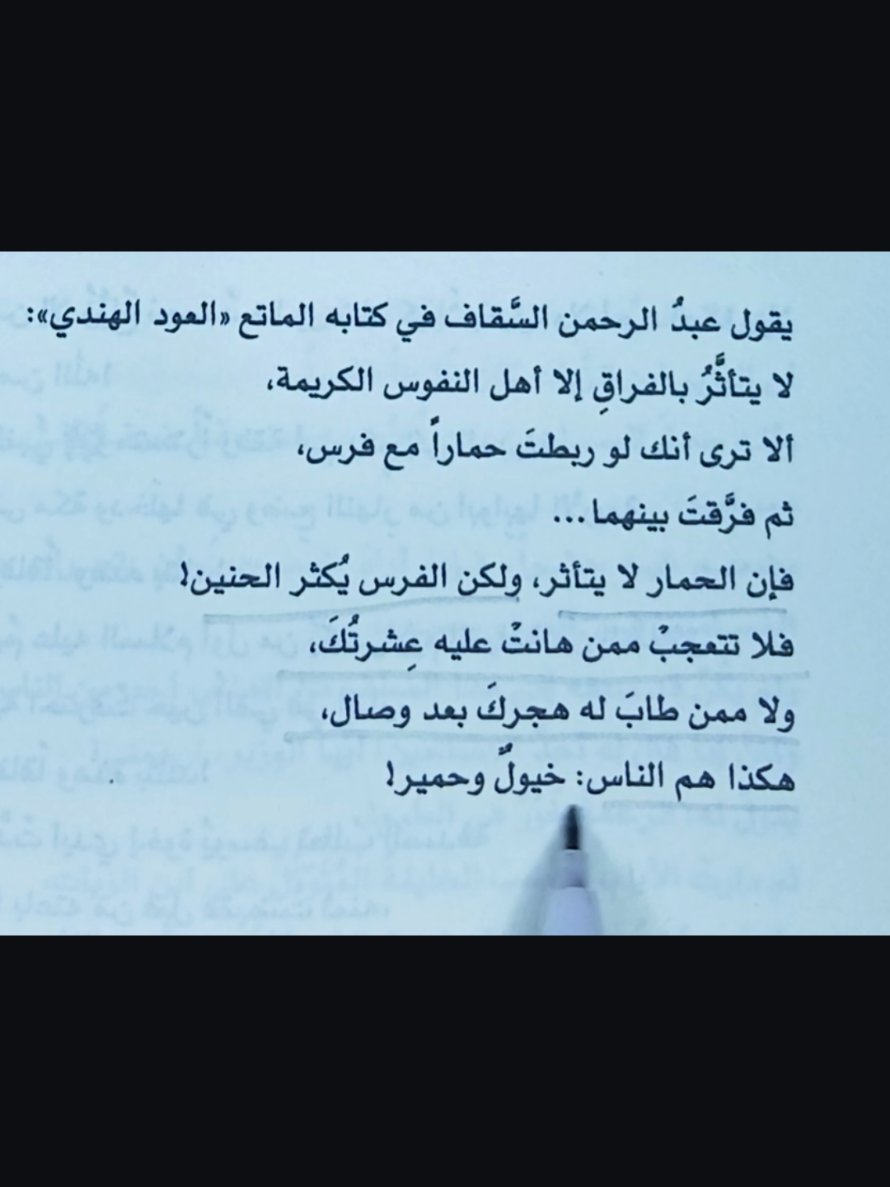 يقول عبدُ الرحمن السَّقاف في كتابه الماتع «العود الهندي»:
لا يتأثَّرُ بالفراقِ إلا أهل النفوس الكريمة،
ألا ترى أنك لو ربطتَ حماراً مع فرس،
ثم فرَّقتَ بينهما...
فإن الحمار لا يتأثر، ولكن الفرس يُكثر الحنين!
فلا تتعجبْ ممن هانتْ عليه عِشرتُكَ،
ولا ممن طابَ له هجركَ بعد وصال،
هكذا هم الناس: خيولٌ وحمير!